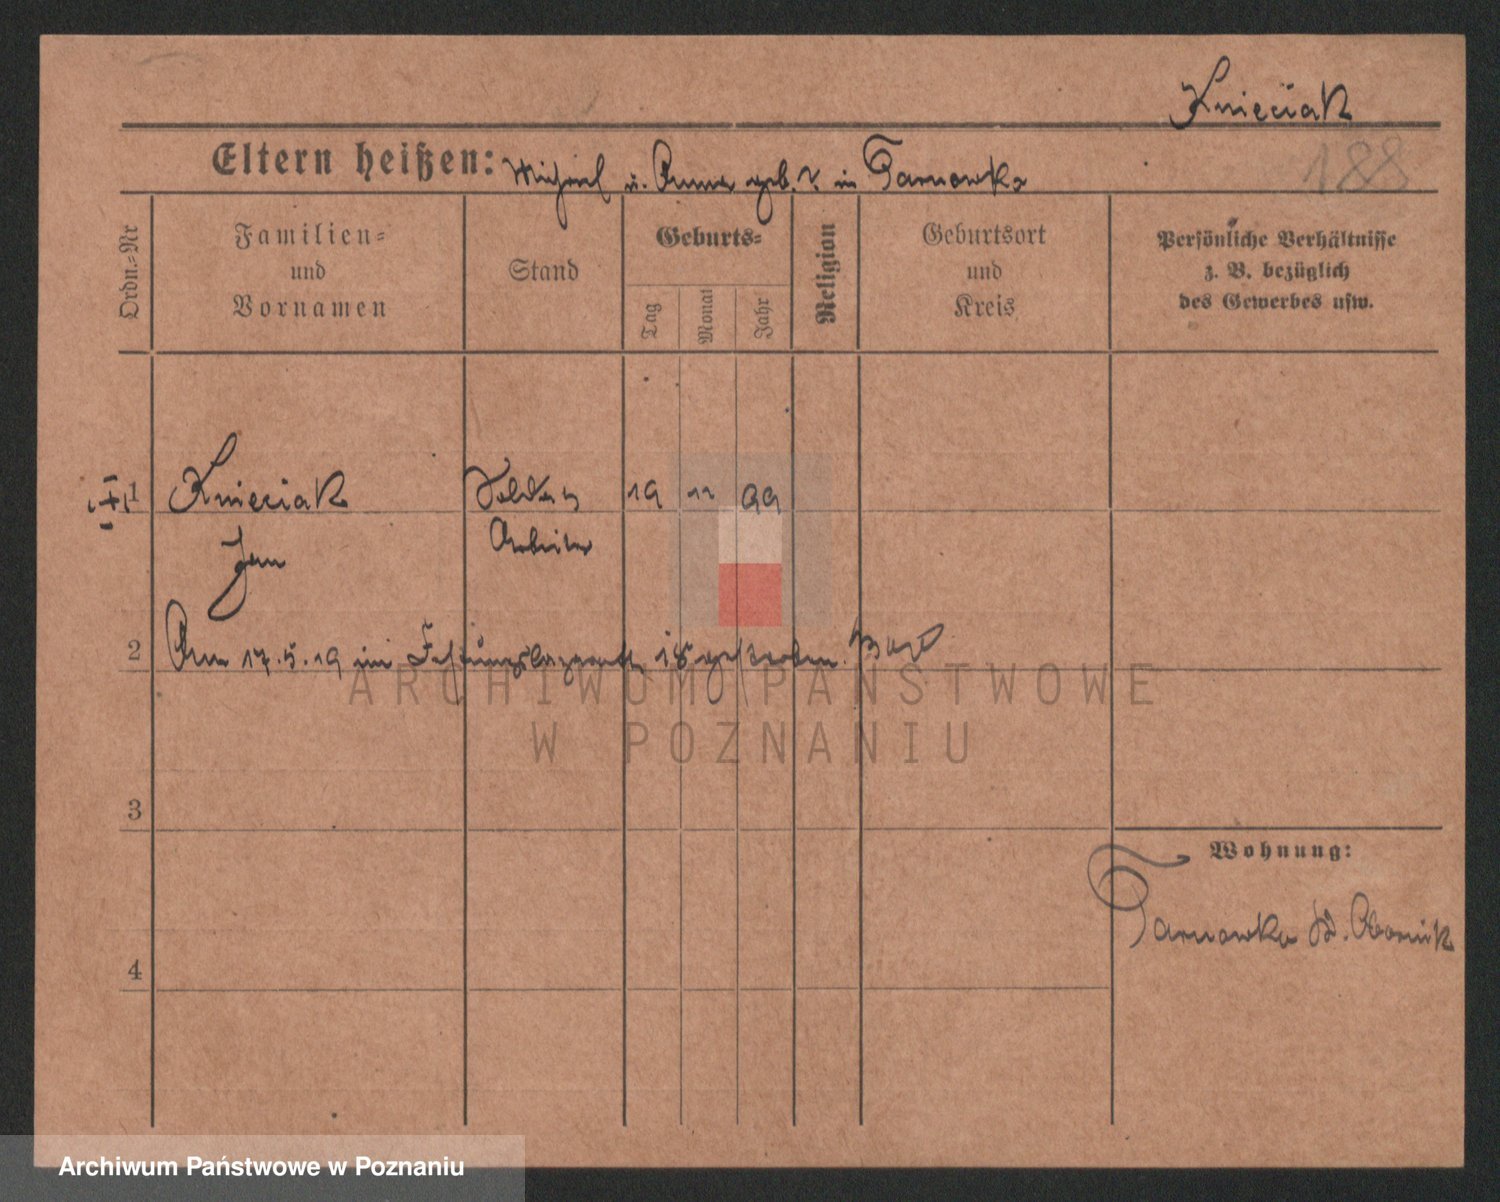 Knieciak
Eltern heißen: Michael u. Anna geb. ? in Tarnowko
188
Ordn.-Nr
Familien-
und
Vornamen
Stand
Geburts-
Tag
Monat
Jahr
Religion
Geburtsort
und
Kreis
Persönliche Verhältnisse
z. B. bezüglich
des Gewerbes usw.
1 Knieciak Soldat 19 11 99
Jan Arbeiter
2 Am 17.5.19 im Festungslazarett gestorben.
ARCHIWUM PAŃSTWOWE
W POZNANIU
3
Wohnung:
Tarnowko Kr. Obornik
4
Archiwum Państwowe w Poznaniu